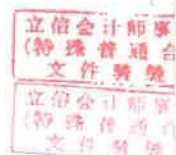 立信会计师事
(特殊普通合
文件骑缝
立信会计师事
(特殊普通合
文件骑缝